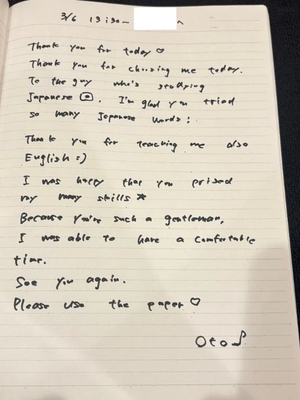 3/6 13:30~
Thank you for today ♡
Thank you for choosing me today.
To the guy who's studying
Japanese 🇯🇵. I'm glad you tried
so many Japanese words!
Thank you for teaching me also
English :)
I was happy that you prised
my many skills ☆
Because you're such a gentleman,
I was able to have a comfortable
time.
See you again.
Please use the paper ♡
Oto♪